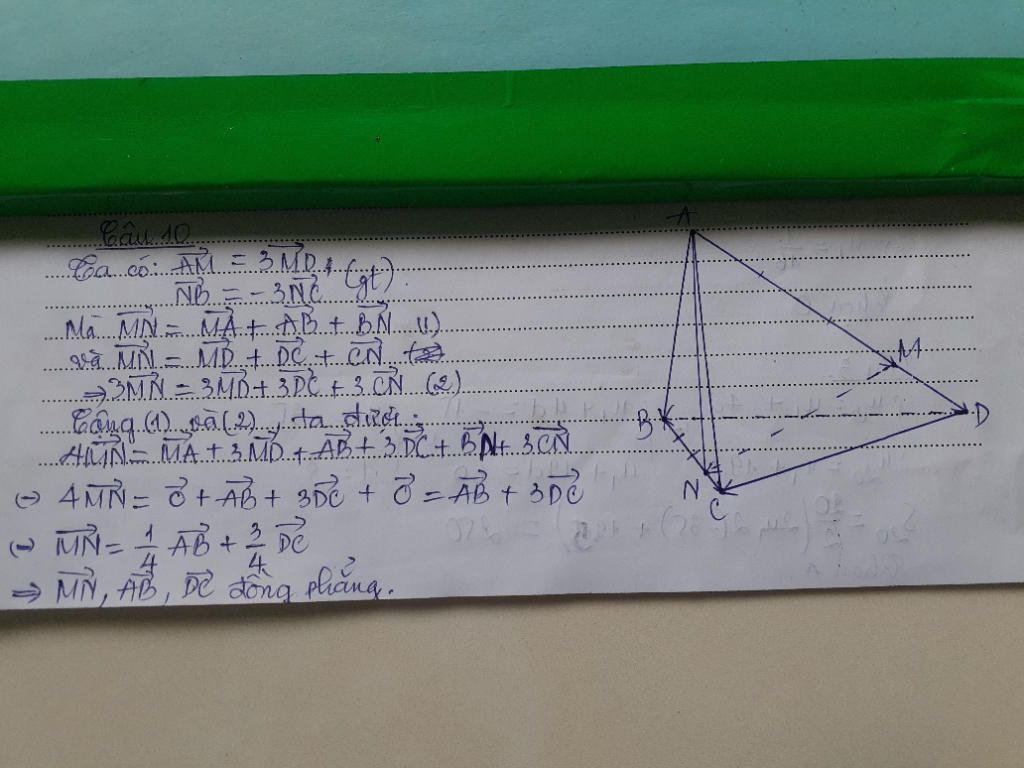 Câu 10
Ta có: AM = 3MD, (gt).
NB = -3NC
Mà MN = MA + AB + BN (1)
và MN = MD + DC + CN
⇒ 3MN = 3MD + 3DC + 3.CN (2)
Cộng (1) và (2), ta được:
4MN = MA + 3MD + AB + 3DC + BN + 3CN
⇔ 4MN = 0 + AB + 3DC + 0 = AB + 3DC
⇔ MN = 1/4 AB + 3/4 DC
⇒ MN, AB, DC đồng phẳng.
A
M
B
D
N
C